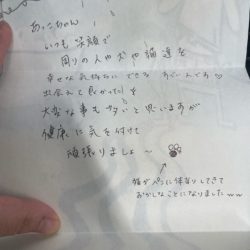 あっこちゃん
いつも笑顔で
周りの人や犬や猫達を
幸せな気持ちにできる すごい人です♡
出会えて良かった!!
大変な事も多いと思いますが
健康に気を付けて
頑張りましょ〜
猫がペンに体当りしてきて
おかしなことになりましたww